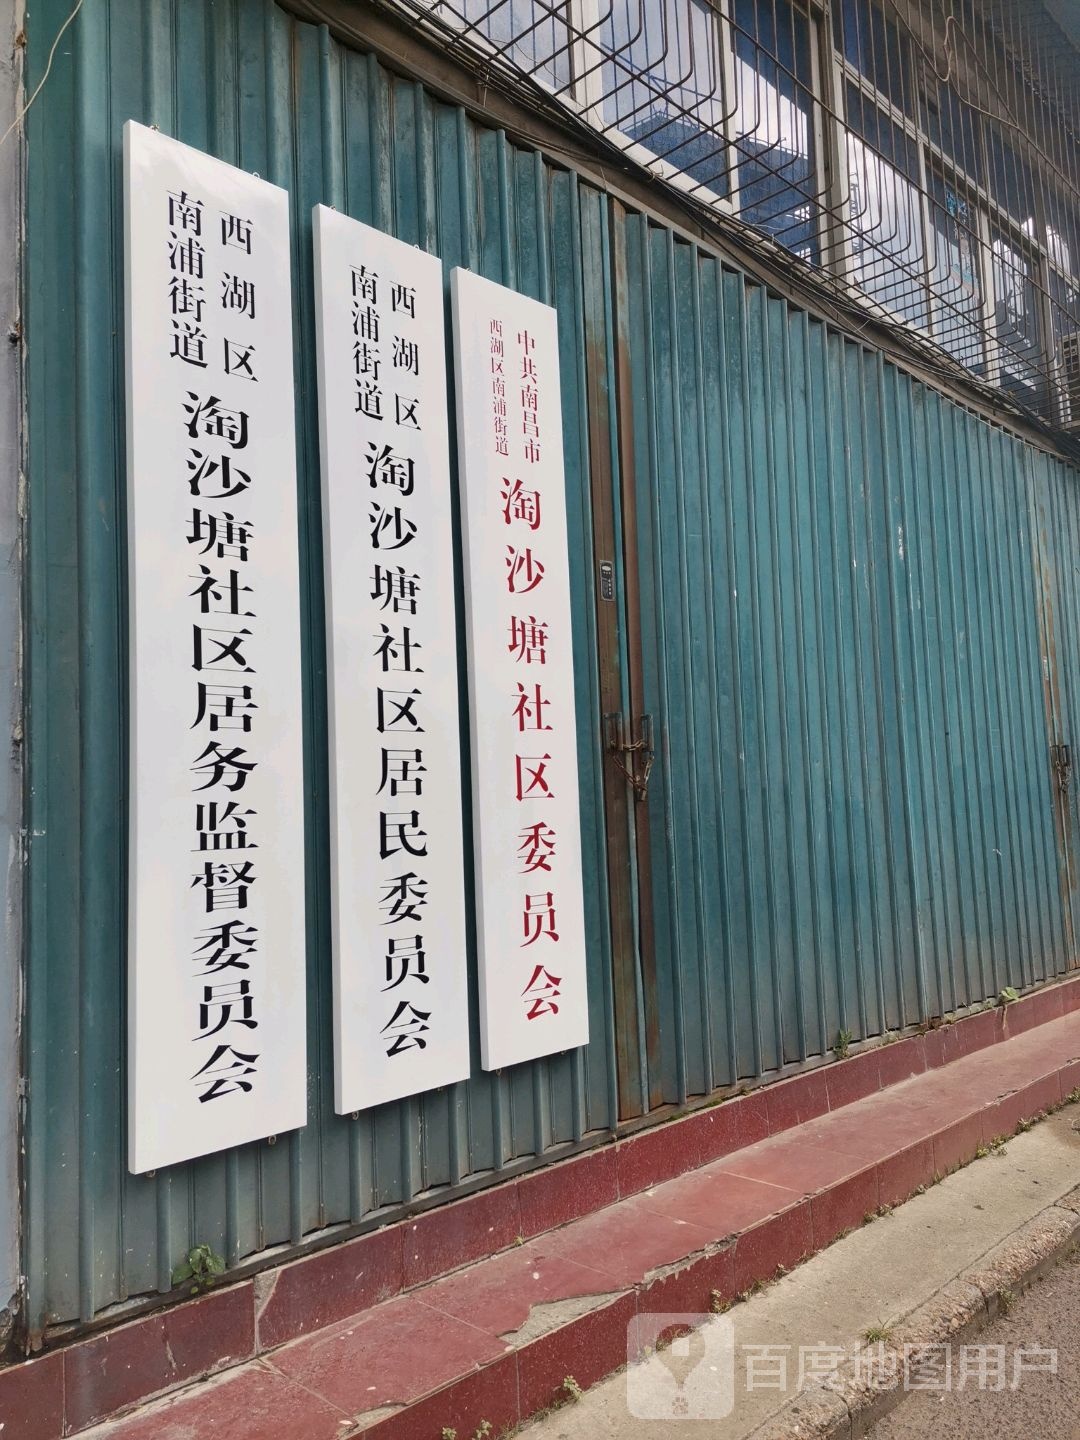 西湖区
南浦街道
淘沙塘社区居务监督委员会
西湖区
南浦街道
淘沙塘社区居民委员会
中共南昌市
西湖区南浦街道
淘沙塘社区委员会
百度地图用户